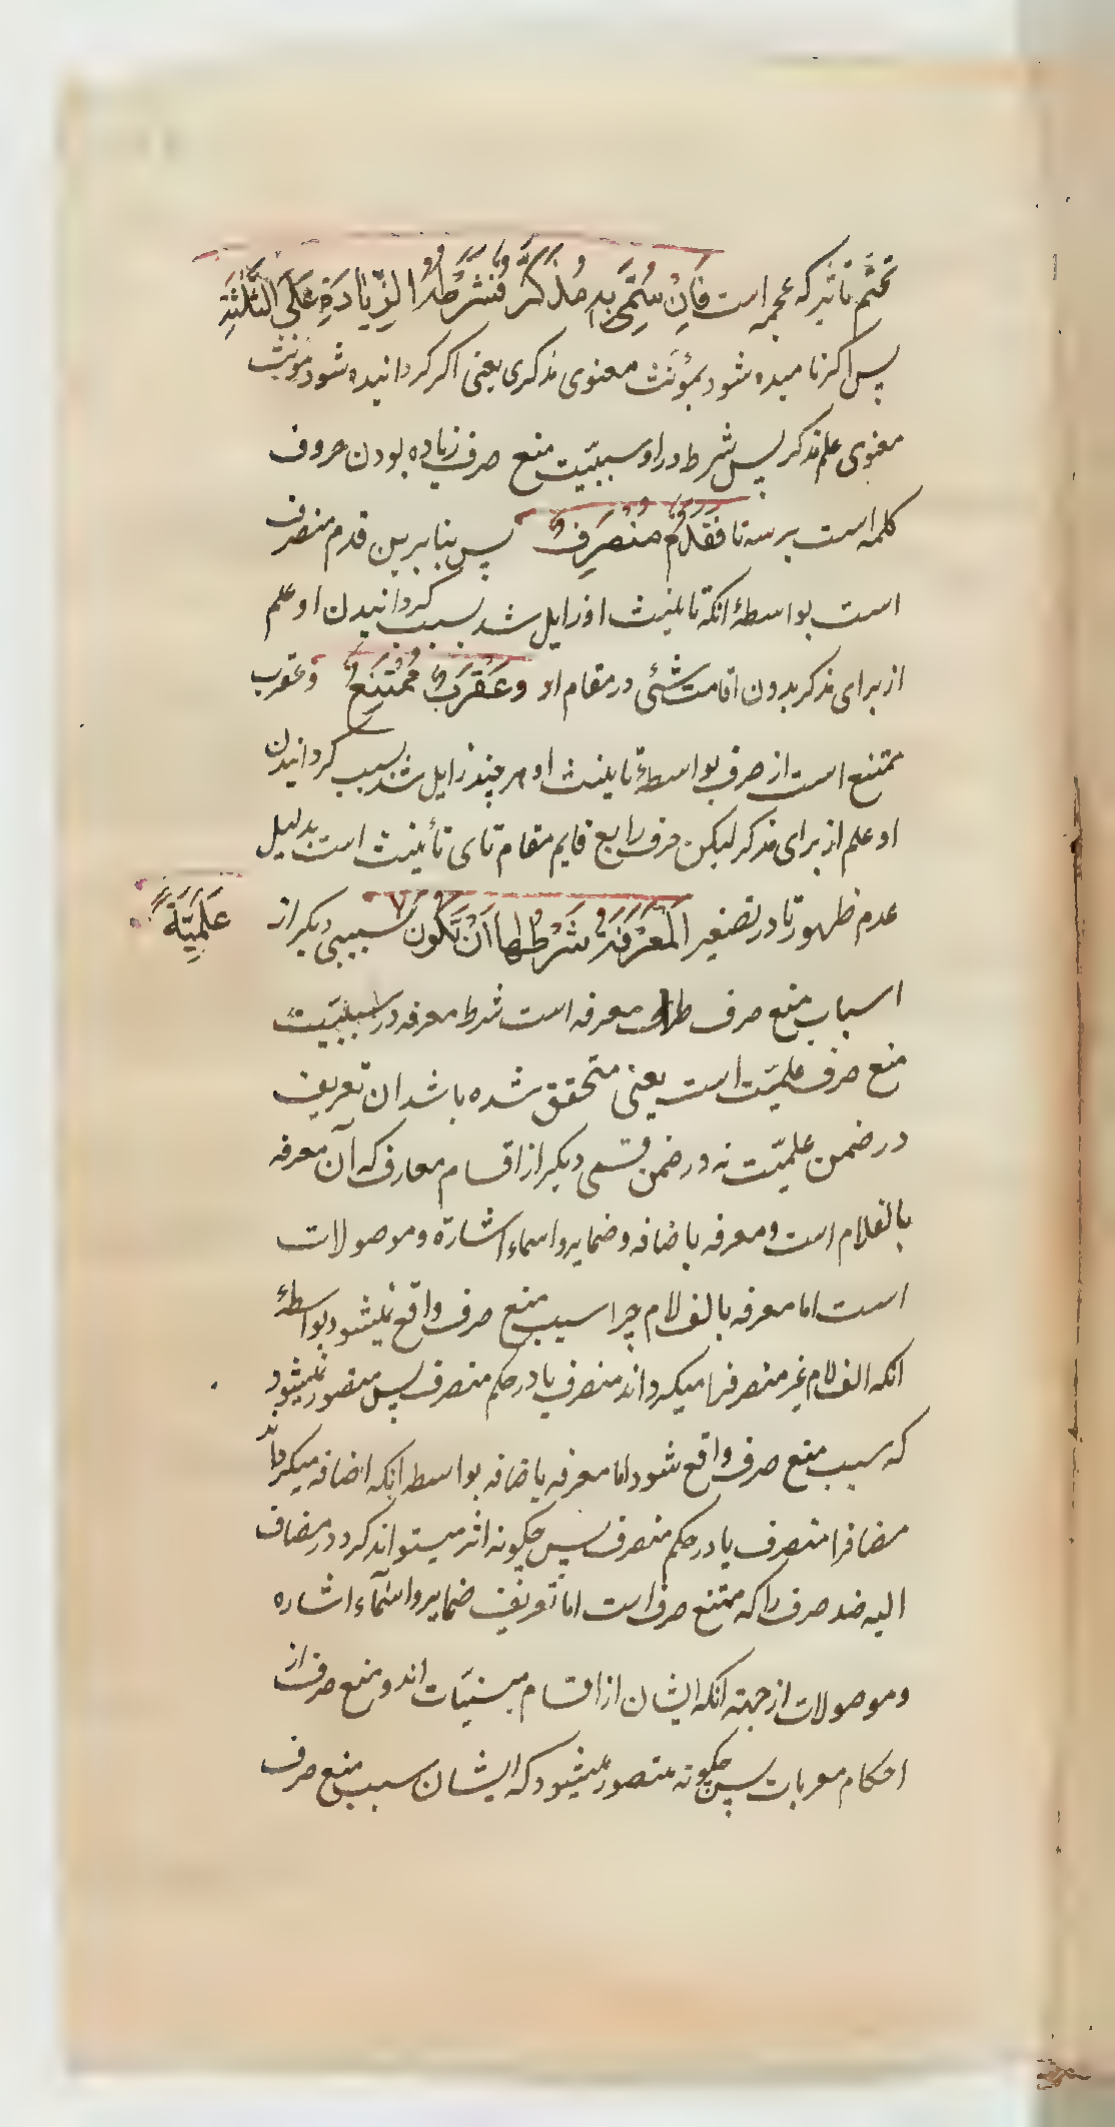 تحتّم تاثیر که عجمه است فَاِنْ سُمِّیَ بِهِ مُذَکَّرٌ فَشَرْطُهُ الزِّیَادَةِ عَلَی الثَّلٰثَةِ
پس اکر نامیده شود بمؤنث معنوی مذکری یعنی اکر کردانیده شود مونث
معنوی علم مذکر پس شرط در او سببیّت منع صرف زیاده بودن حروف
کلمه است بر سه تا فَقَدَمٌ مُنْصَرِفٌ پس بنابرین قدم منصرف
است بواسطهٔ انکه تانیث او زایل شد بسبب کردانیدن او علم
از برای مذکر بدون اقامت شئی در مقام او وَعَقْرَبٌ مُمْتَنِعٌ وعقرب
ممتنع است از صرف بواسطهٔ تانیث او هر چند زایل شد بسبب کردانیدن
او علم از برای مذکر لیکن حرف رابع قایم مقام تای تأنیث است بدلیل
عدم ظهور تا در تصغیر اَلْمَعْرِفَةُ شَرْطُهَا اَنْ تَکُونَ سببی دیکر از
عَلَمِیَّةً
اسباب منع صرف معرفه است شرط معرفه در سببیّت
منع صرف علمیّت است یعنی متحقق شده باشد ان تعریف
در ضمن علمیّت نه در ضمن قسمی دیکر از اقسام معارف که آن معرفه
بالفلام است و معرفه باضافه وضمایر واسماء اشاره وموصولات
است اما معرفه بالف لام چرا سبب منع صرف واقع نمیشود بواسطهٔ
انکه الف لام غیر منصرفرا میکرداند منصرف یا در حکم منصرف پس متصور نمیشود
که سبب منع صرف واقع شود اما معرفه باضافه بواسطه انکه اضافه میکرداند
مضافرا منصرف یا در حکم منصرف پس چکونه اثر میتواند کرد در مضاف
الیه ضد صرف را که ممتنع صرف است اما تعریف ضمایر واسمآء اشاره
وموصولات از جهته انکه ایشان از اقسام مبنیّات اند ومنع صرف از
احکام معربات پس چکونه متصور میشود که ایشان سبب منع صرف